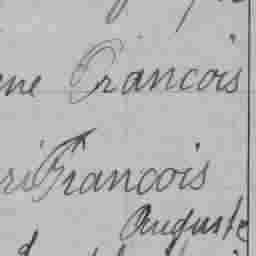 ne Francois
ri Francois
Auguste